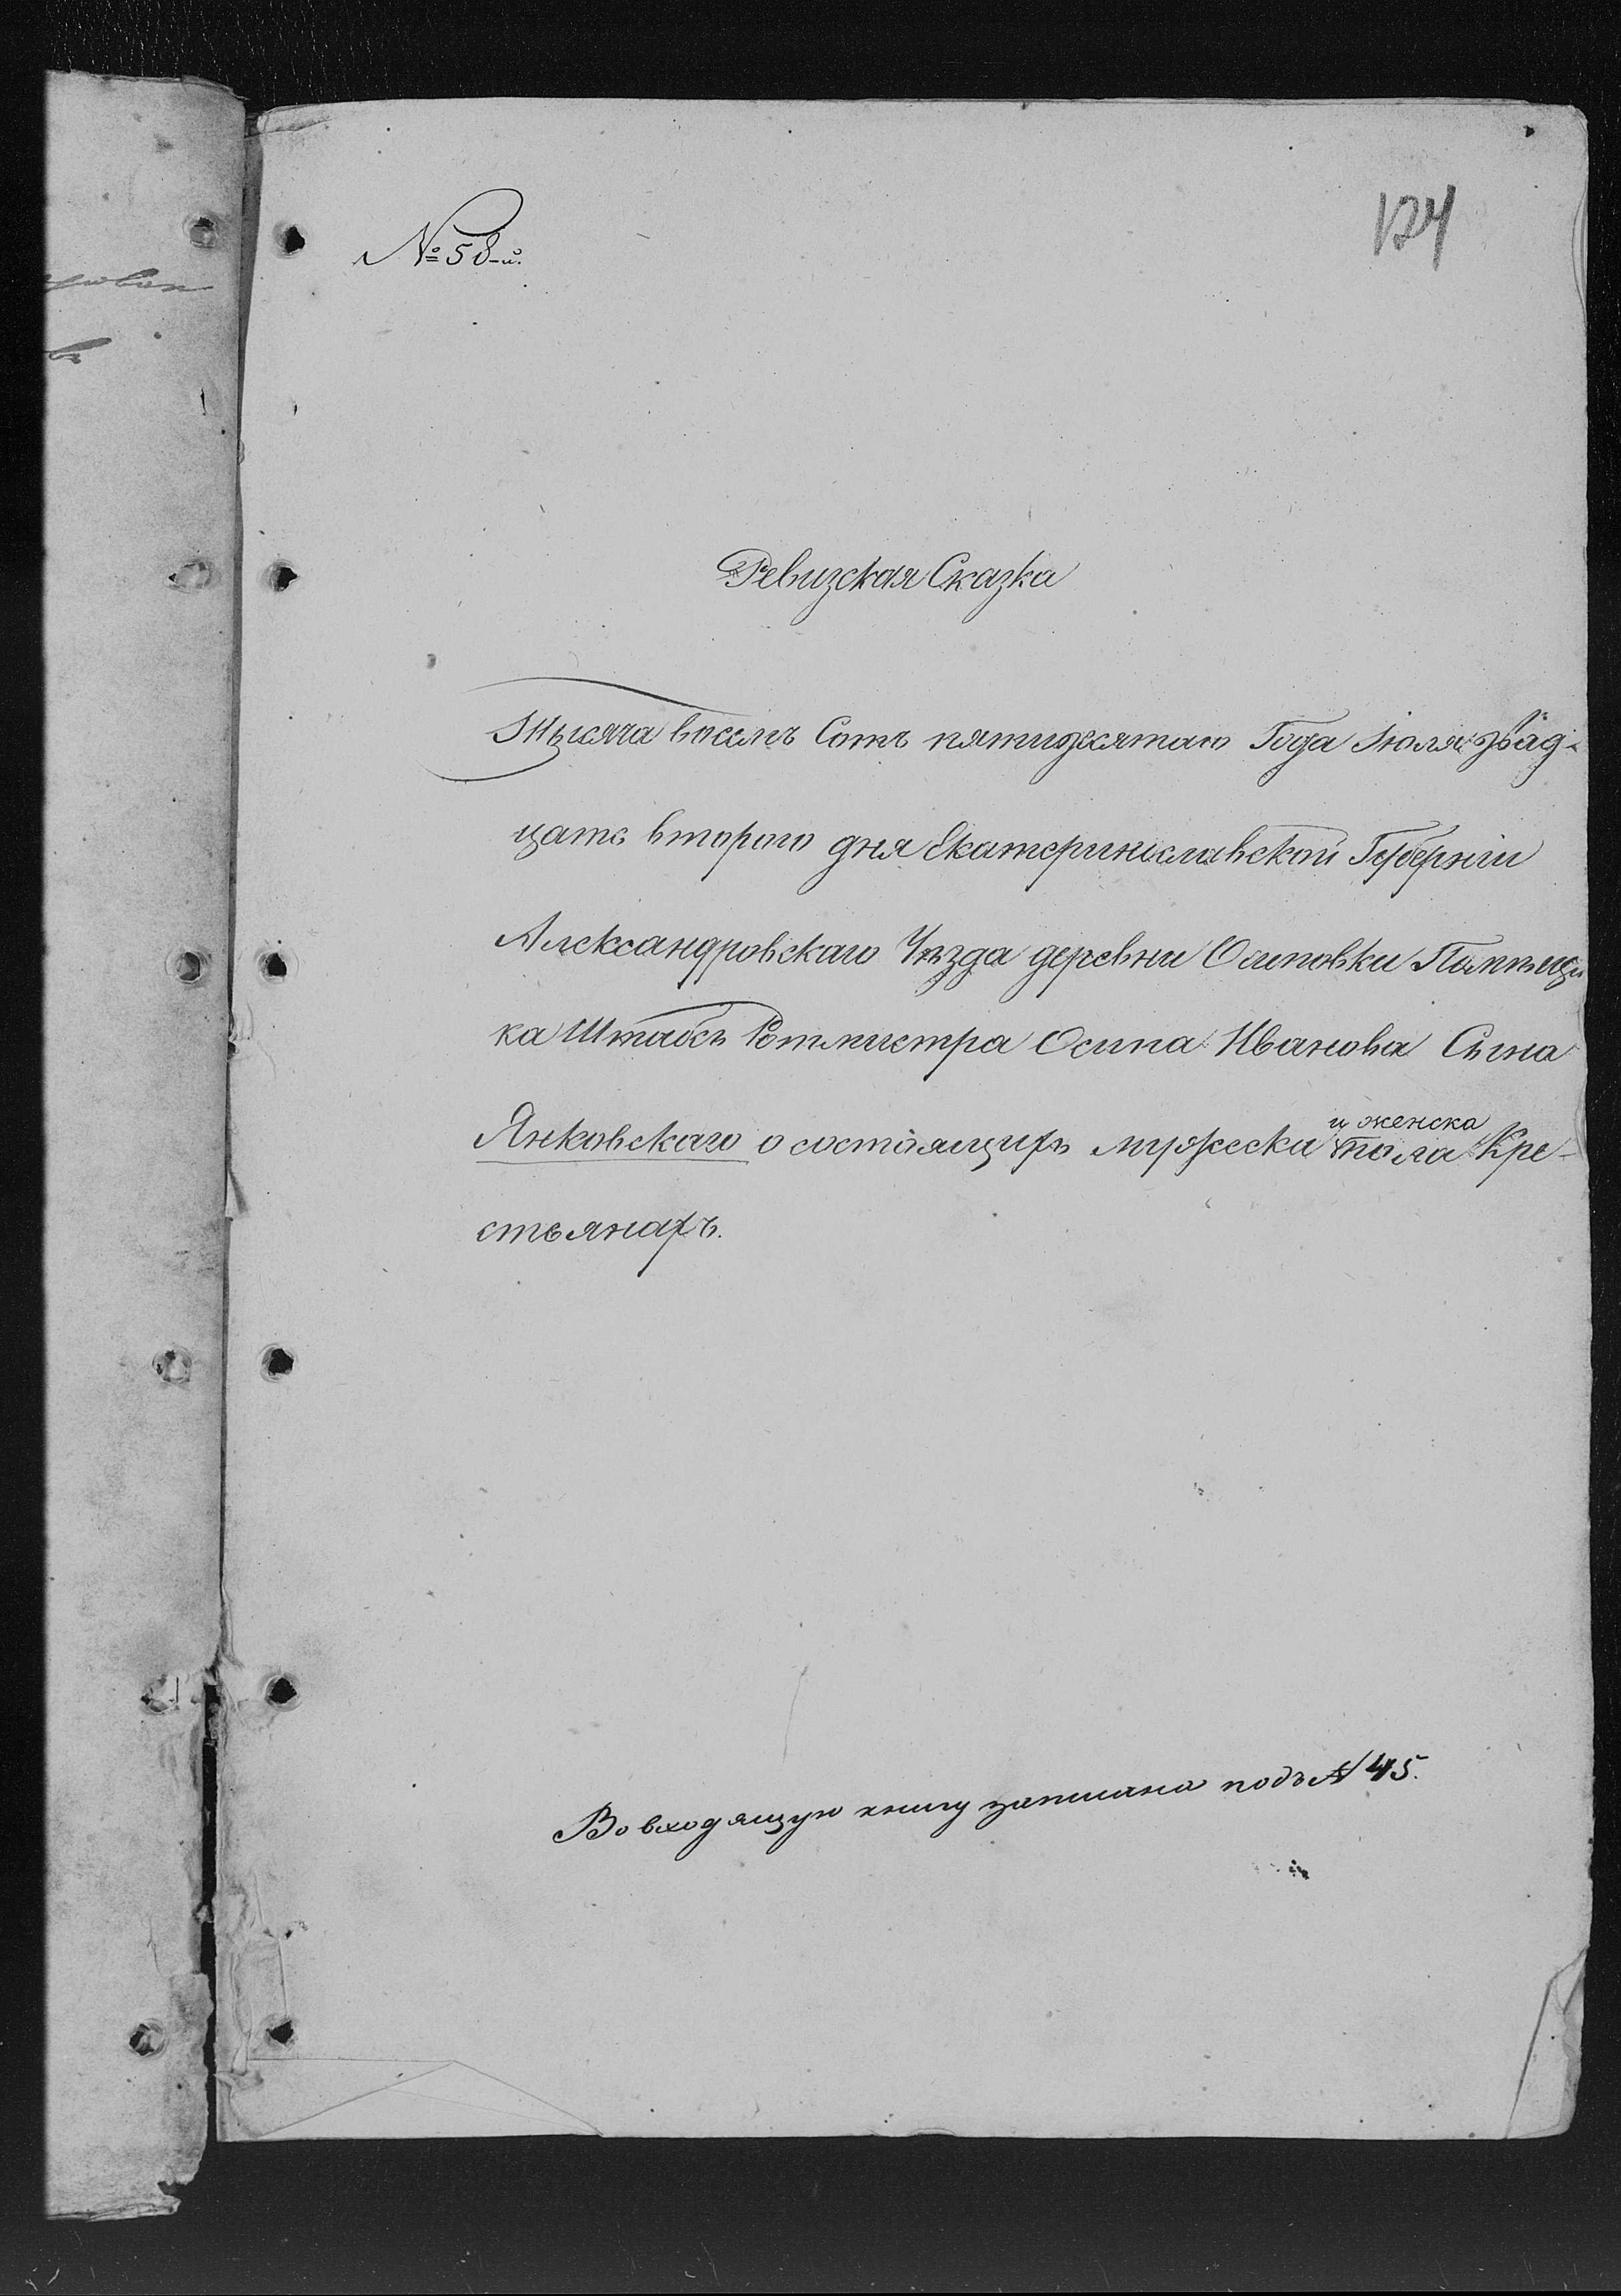 № 58-й.
124
Ревизская Сказка
Тысяча восемь Сотъ пятидесятаго Года Іюля двад-
цать втораго дня Екатеринославской Губерніи
Александровскаго Уѣзда деревни Осиповки Помѣщи
ка Штабсъ Ротмистра Осипа Иванова Сына
и женска
Янковскаго о состоящихъ мужеска пола Кре-
стьянахъ.
Во входящую книгу записана подъ № 45.